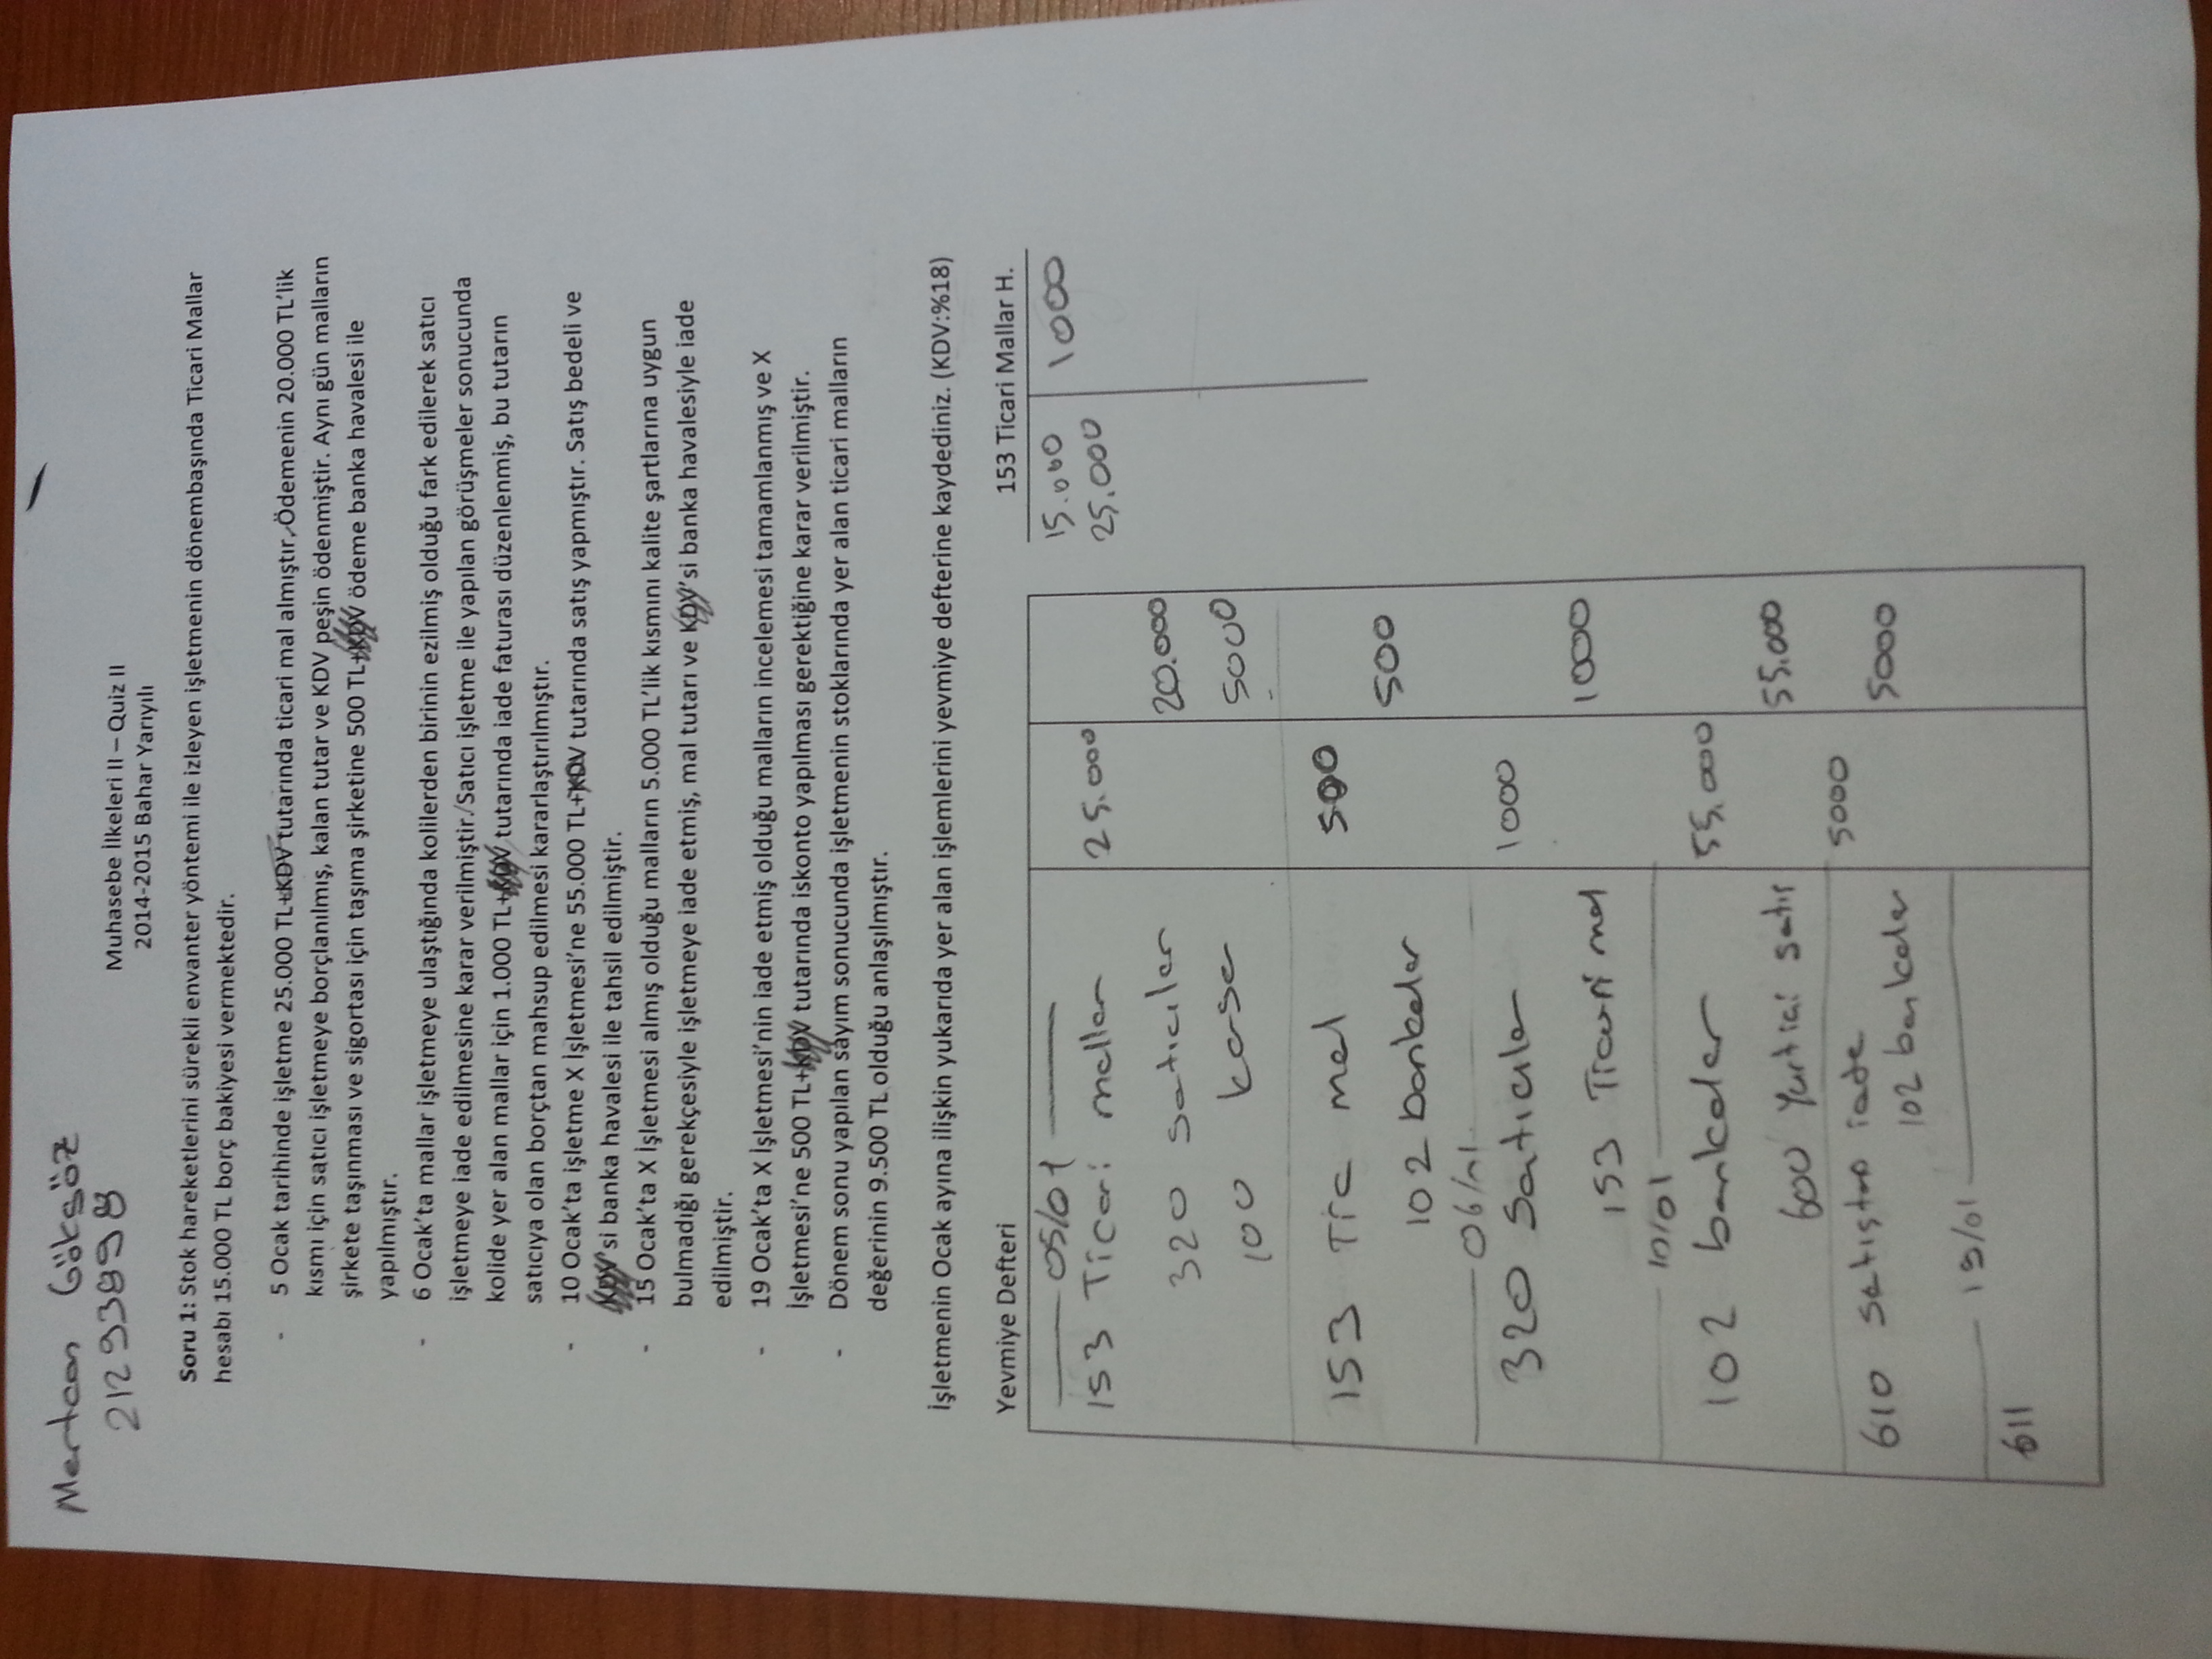 Mertcan Göksöz
21293898
Muhasebe İlkeleri II – Quiz II
2014-2015 Bahar Yarıyılı
Soru 1: Stok hareketlerini sürekli envanter yöntemi ile izleyen işletmenin dönembaşında Ticari Mallar
hesabı 15.000 TL borç bakiyesi vermektedir.
- 5 Ocak tarihinde işletme 25.000 TL+KDV tutarında ticari mal almıştır. Ödemenin 20.000 TL'lik
kısmı için satıcı işletmeye borçlanılmış, kalan tutar ve KDV peşin ödenmiştir. Aynı gün malların
şirkete taşınması ve sigortası için taşıma şirketine 500 TL+KDV ödeme banka havalesi ile
yapılmıştır.
- 6 Ocak'ta mallar işletmeye ulaştığında kolilerden birinin ezilmiş olduğu fark edilerek satıcı
işletmeye iade edilmesine karar verilmiştir. Satıcı işletme ile yapılan görüşmeler sonucunda
kolide yer alan mallar için 1.000 TL+KDV tutarında iade faturası düzenlenmiş, bu tutarın
satıcıya olan borçtan mahsup edilmesi kararlaştırılmıştır.
- 10 Ocak'ta işletme X İşletmesi'ne 55.000 TL+KDV tutarında satış yapmıştır. Satış bedeli ve
KDV'si banka havalesi ile tahsil edilmiştir.
- 15 Ocak'ta X İşletmesi almış olduğu malların 5.000 TL'lik kısmını kalite şartlarına uygun
bulmadığı gerekçesiyle işletmeye iade etmiş, mal tutarı ve KDV'si banka havalesiyle iade
edilmiştir.
- 19 Ocak'ta X İşletmesi'nin iade etmiş olduğu malların incelemesi tamamlanmış ve X
İşletmesi'ne 500 TL+KDV tutarında iskonto yapılması gerektiğine karar verilmiştir.
- Dönem sonu yapılan sayım sonucunda işletmenin stoklarında yer alan ticari malların
değerinin 9.500 TL olduğu anlaşılmıştır.
İşletmenin Ocak ayına ilişkin yukarıda yer alan işlemlerini yevmiye defterine kaydediniz. (KDV:%18)
Yevmiye Defteri 153 Ticari Mallar H.
05/01 15.000 1000
153 Ticari mallar 25.000 25.000
320 satıcılar 20.000
100 kasa 5000
153 Tic mal 500
102 bankalar 500
06/01
320 Satıcılar 1000
153 Ticari mal 1000
10/01
102 bankalar 55.000
600 Yurtiçi satış 55.000
610 satıştan iade 5000
102 bankalar 5000
19/01
611